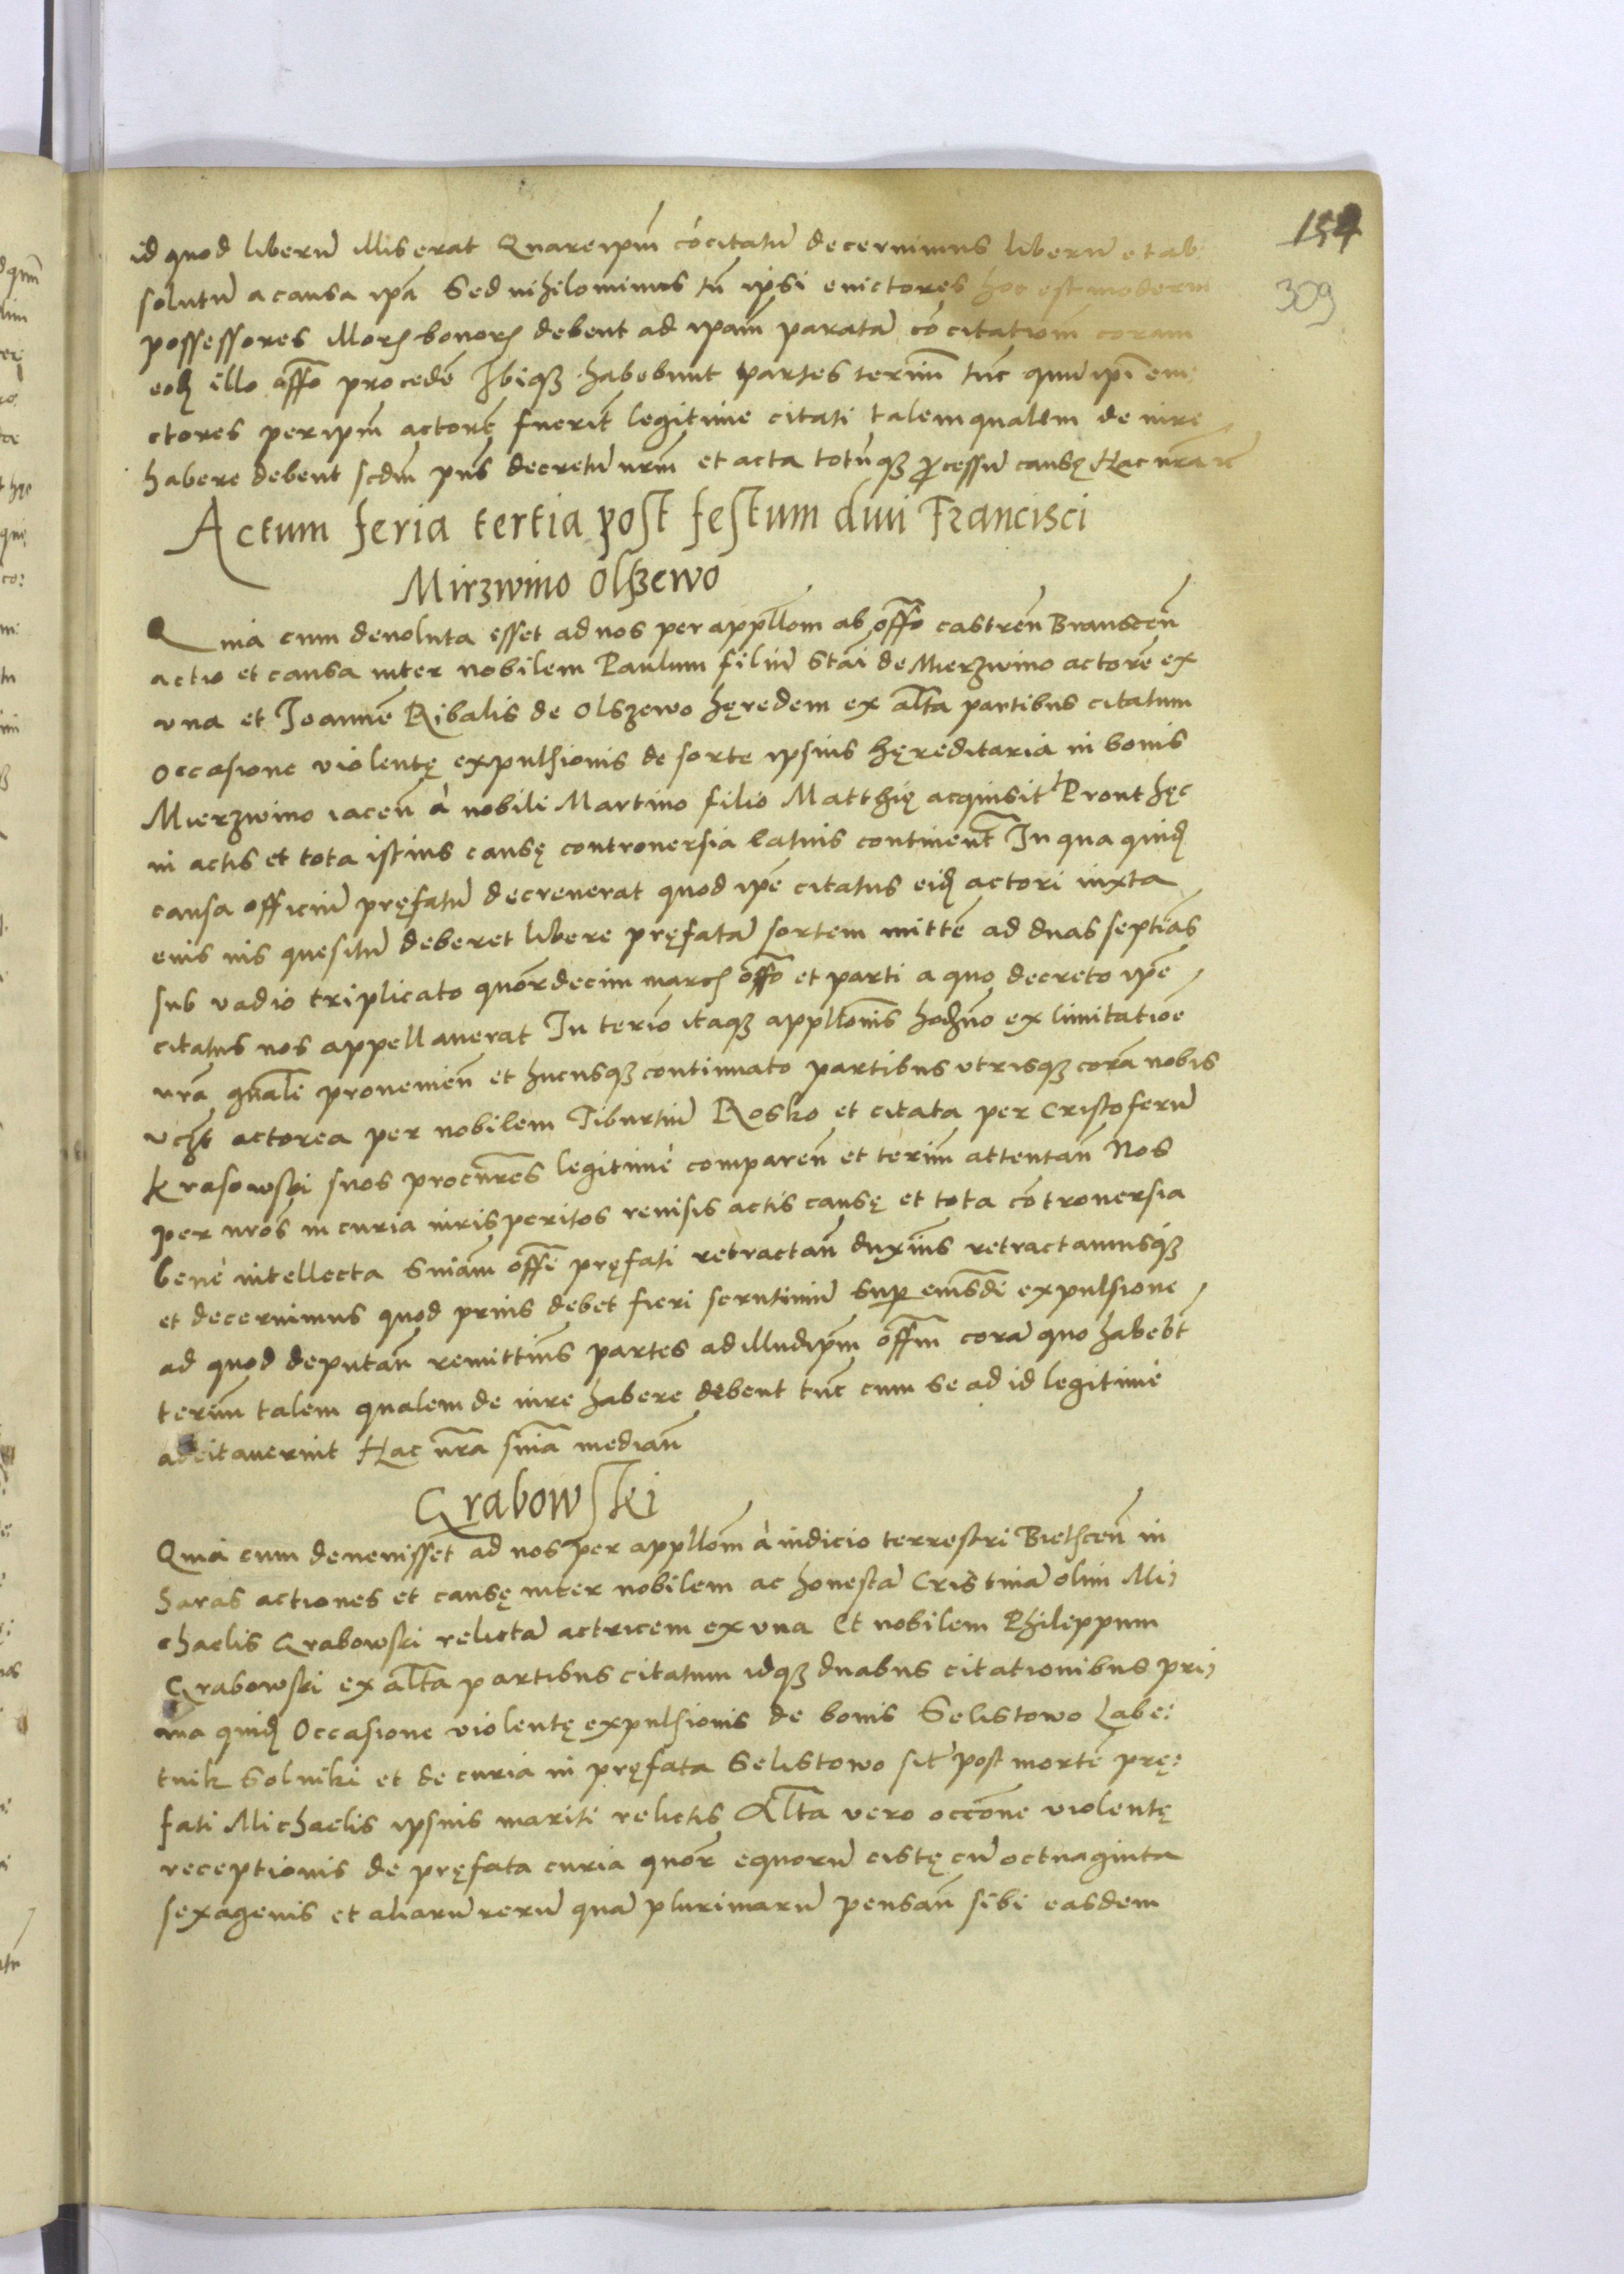 154
309
id quod liberũ illis erat Quare ipm̃ cõcitatũ decernimus liberũ et ab:
solutũ a causa ipã Sed nihilominus tñ ipsi euictores hoc est moderni
possessores illorꝝ bonorꝝ debent ad ipam̃ paratã cõcitationẽ coram
eodꝫ illo offõ procedẽ Ibiqꝫ habebunt partes termiñ tũc quũ ipi eui
ctores per ipm̃ actorẽ fuerĩt legitime citati talem qualem de iure
habere debent scdm̃ pñs decretũ nrm̃ et acta totũqꝫ ꝓcessũ causę Hac nrã ꝛc
Actum feria tertia post festum diui Francisci
Mirzwino Olszewo
Quia cum deuoluta esset ad nos per appllom̃ ab offõ castreñ Branscen̄
actio et causa inter nobilem Paulum filiũ Stãi de Mierzwino actorẽ ex
vna et Joannẽ Ribalis de Olszewo hęredem ex altã partibus citatum
Occasione violentę expulsionis de sorte ipsius hęreditaria in bonis
Mierzwino iaceñ à nobili Martino filio Matthię acquisit' Prout hęc
in actis et tota istius causę controuersia latius continent̃ In qua quidꝫ
causa officiũ pręfatũ decreuerat quod ipẽ citatus eidꝫ actori iuxta
euis ius quesitũ deberet libere pręfatã sortem mittẽ ad duas septiãs
sub vadio triplicato quõrdecim marcꝝ offõ et parti a quo decreto ipẽ
citatus nos appellauerat In teriõ itaqꝫ appllonĩs hodzño ex limitatioẽ
nrã gñali proueñieñ et hucusqꝫ continuato partibus vtrisqꝫ corã nobis
vcꝫt actorea per nobilem Tiburtiũ Rosko et citata per Cristoferũ
Krasowski suos procurẽs legitimè compareñ et teriñ attentañ Nos
per nrõs in curia iuris peritos reuisis actis causę et tota cõtrouersia
benè intellecta Sniam̃ offĩ pręfati retractañ duximus retractamusqꝫ
et decernimus quod prius debet fieri scrutiniũ sup̲ eiusdẽ expulsione
ad quod deputañ remittimus partes ad illud ipm̃ offm̃ corã quo habebt̃
teriñ talem qualem de iure habere debent tũc cum se ad id legitimè
adcitauerint Hac nrã sniã mediañ
Grabowski
Quia cum deuenissent ad nos per appllom̃ à iudicio terrestri Bielscen̄ in
haras actiones et causę inter nobilem ac honestã Cristinã olim Mi
chaelis Grabowski relictã actricem ex vna Et nobilem Philippum
Grabowski ex altã partibus citatum idqꝫ duabus citationibus pri
ma quidꝫ Occasione violentę expulsionis de bonis Selistowo Labe:
tnik Solniki et de curia in pręfata Selistowo sit' post mortẽ prę:
fati Michaelis ipsius mariti relictis Altã vero occõne violentę
receptionis de pręfata curia quõr equorũ cistę cũ octuaginta
sexagenis et aliarũ rerũ quã plurimarũ pensañ sibi easdem